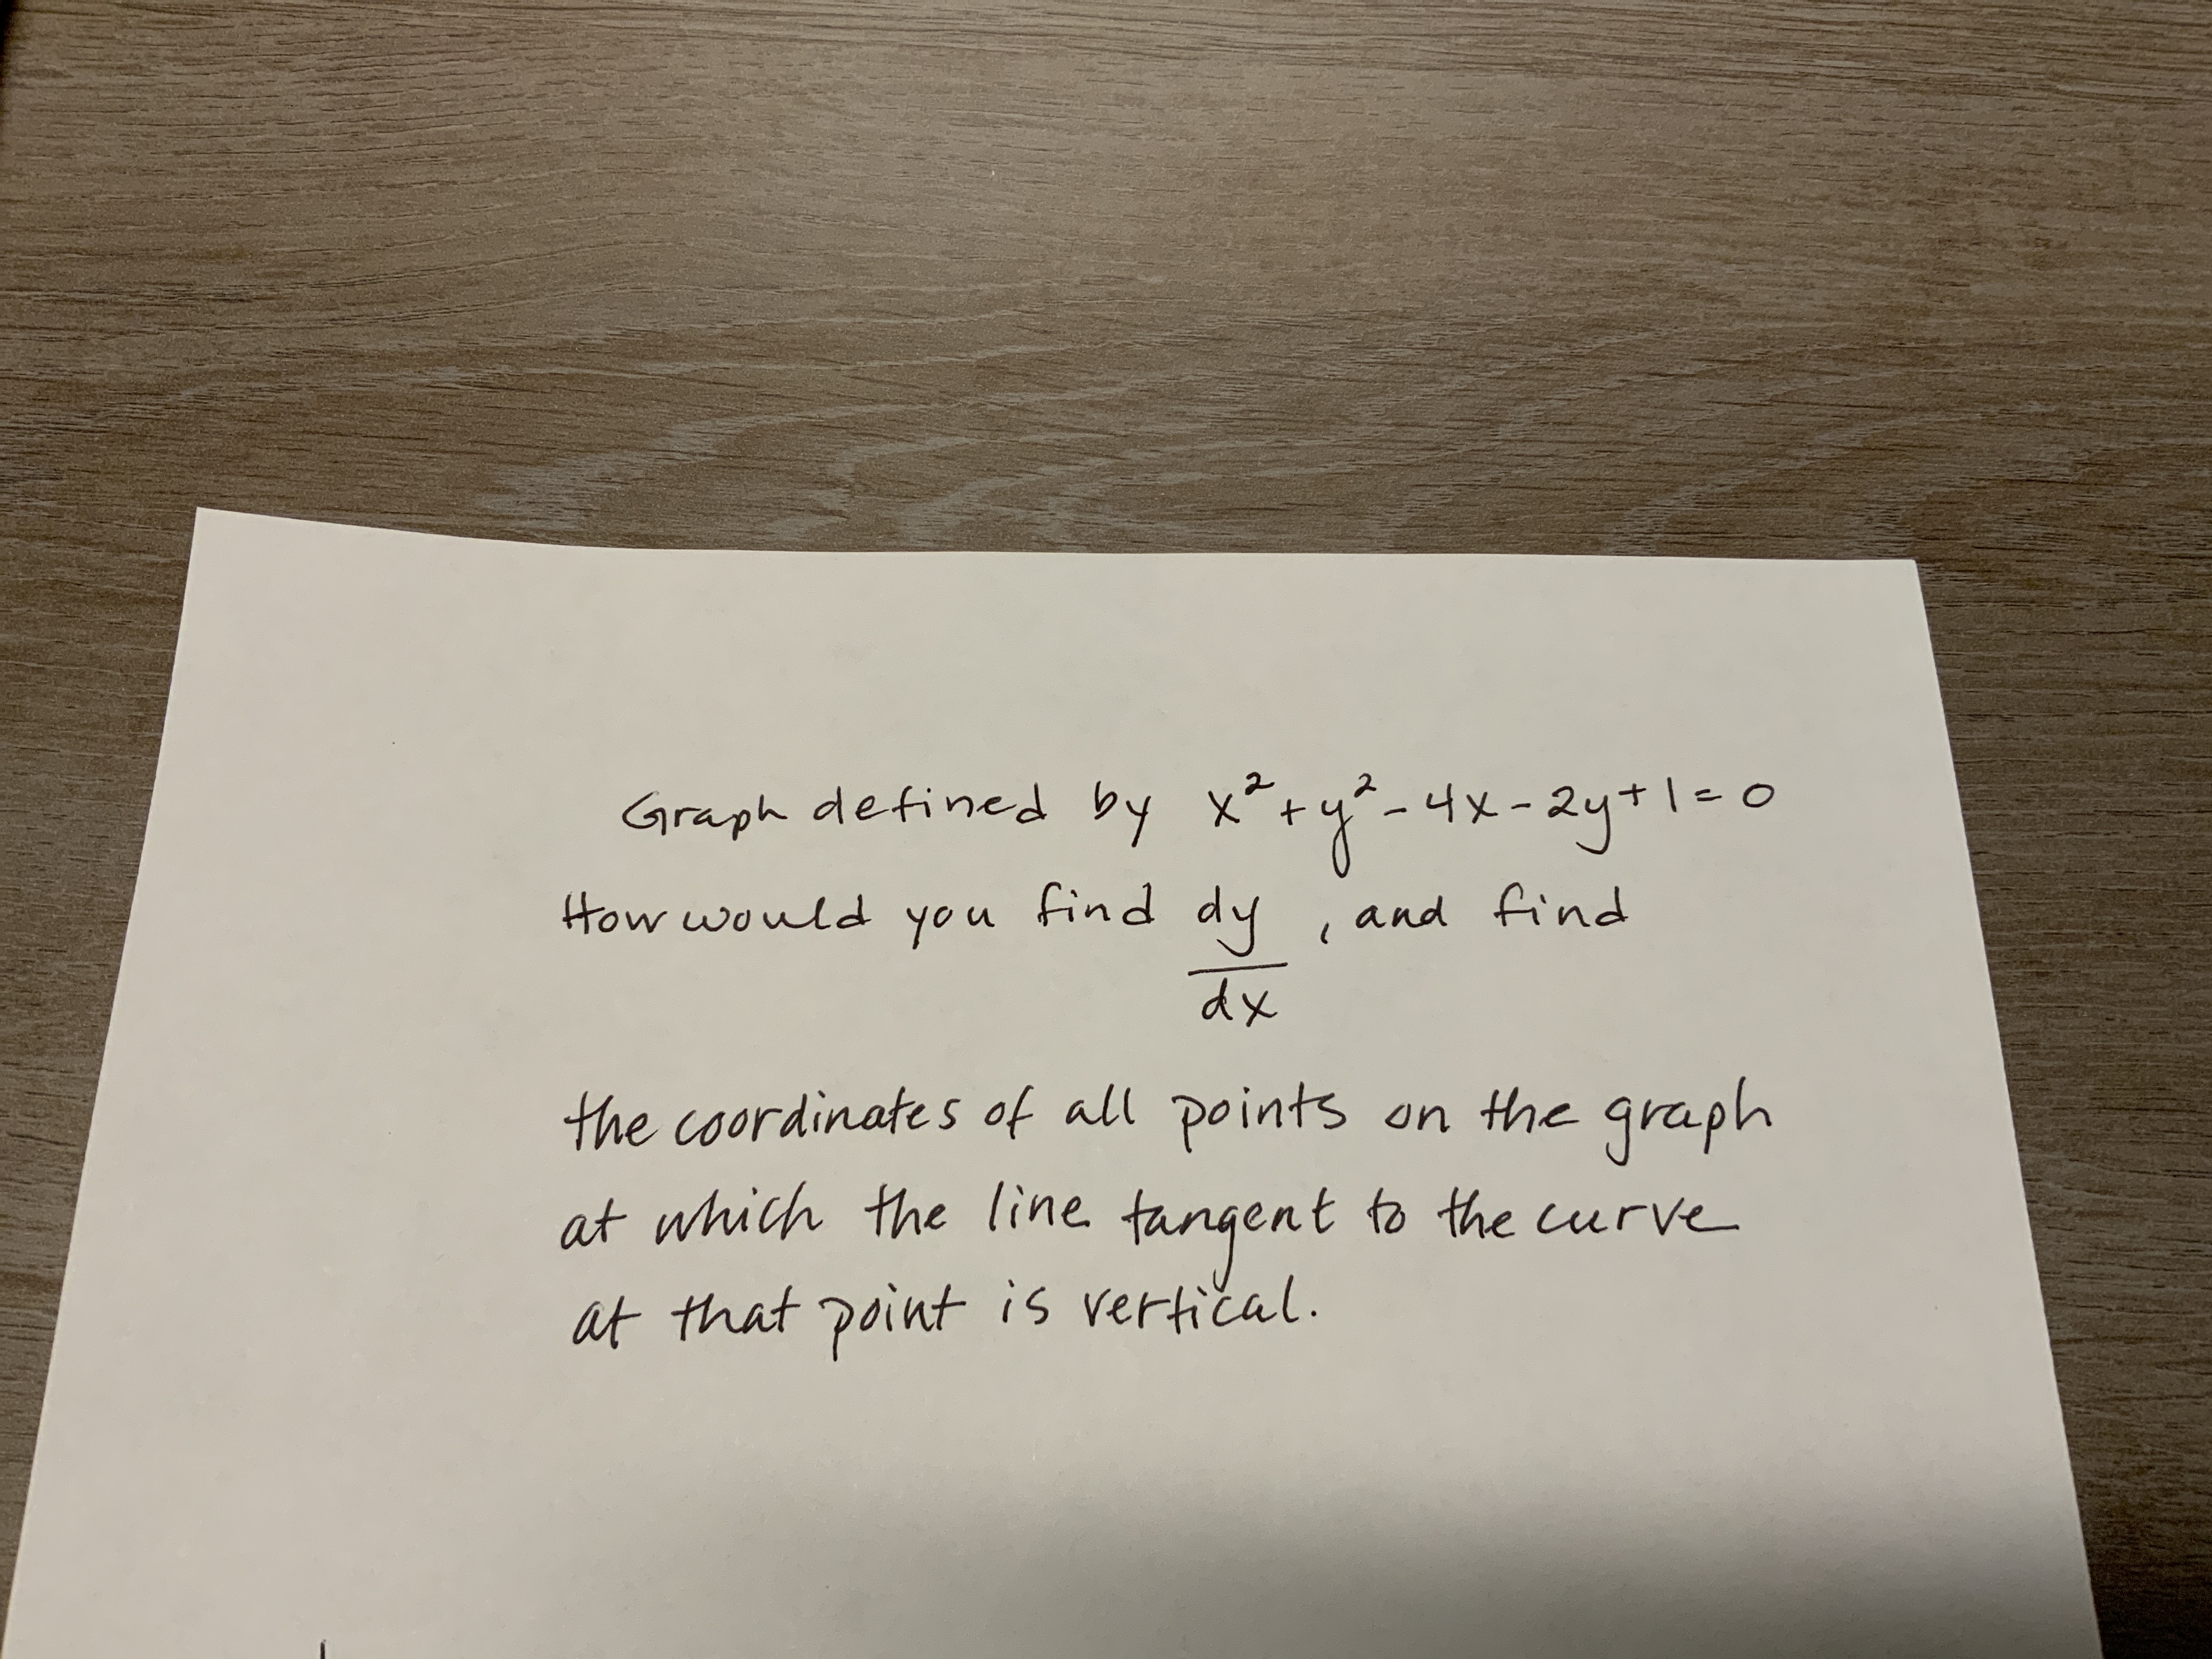 Graph defined by x²+y²-4x-2y+1=0
How would you find dy/dx, and find
the coordinates of all points on the graph
at which the line tangent to the curve
at that point is vertical.